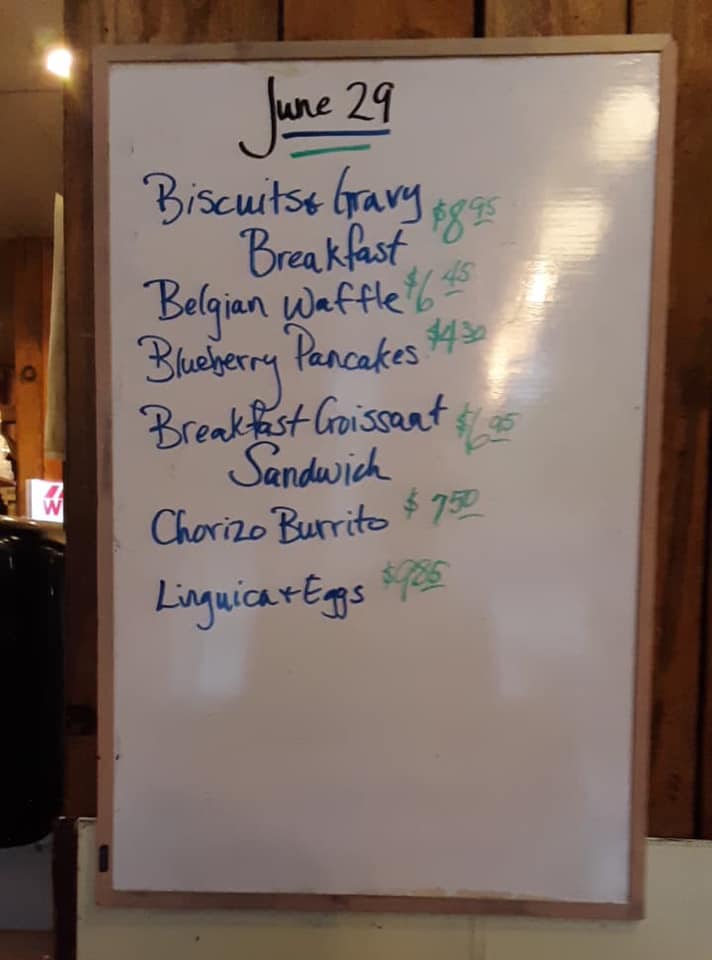 June 29
Biscuits & Gravy $8.95
Breakfast
Belgian Waffle $6.45
Blueberry Pancakes $4.30
Breakfast Croissant $6.95
Sandwich
Chorizo Burrito $7.50
Linguica + Eggs $9.85
W